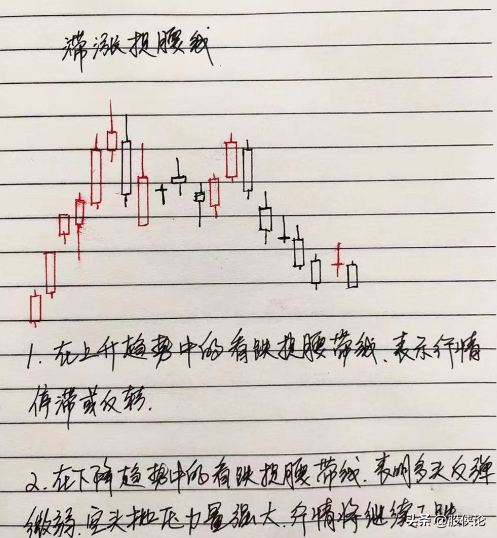 滞涨捉腰线
1. 在上升趋势中的看跌捉腰带线、表示行情
停滞或反转.
2. 在下降趋势中的看跌捉腰带线.表明多头反弹
微弱.空头抛压力量强大.行情将继续下跌
头条 @股侠论